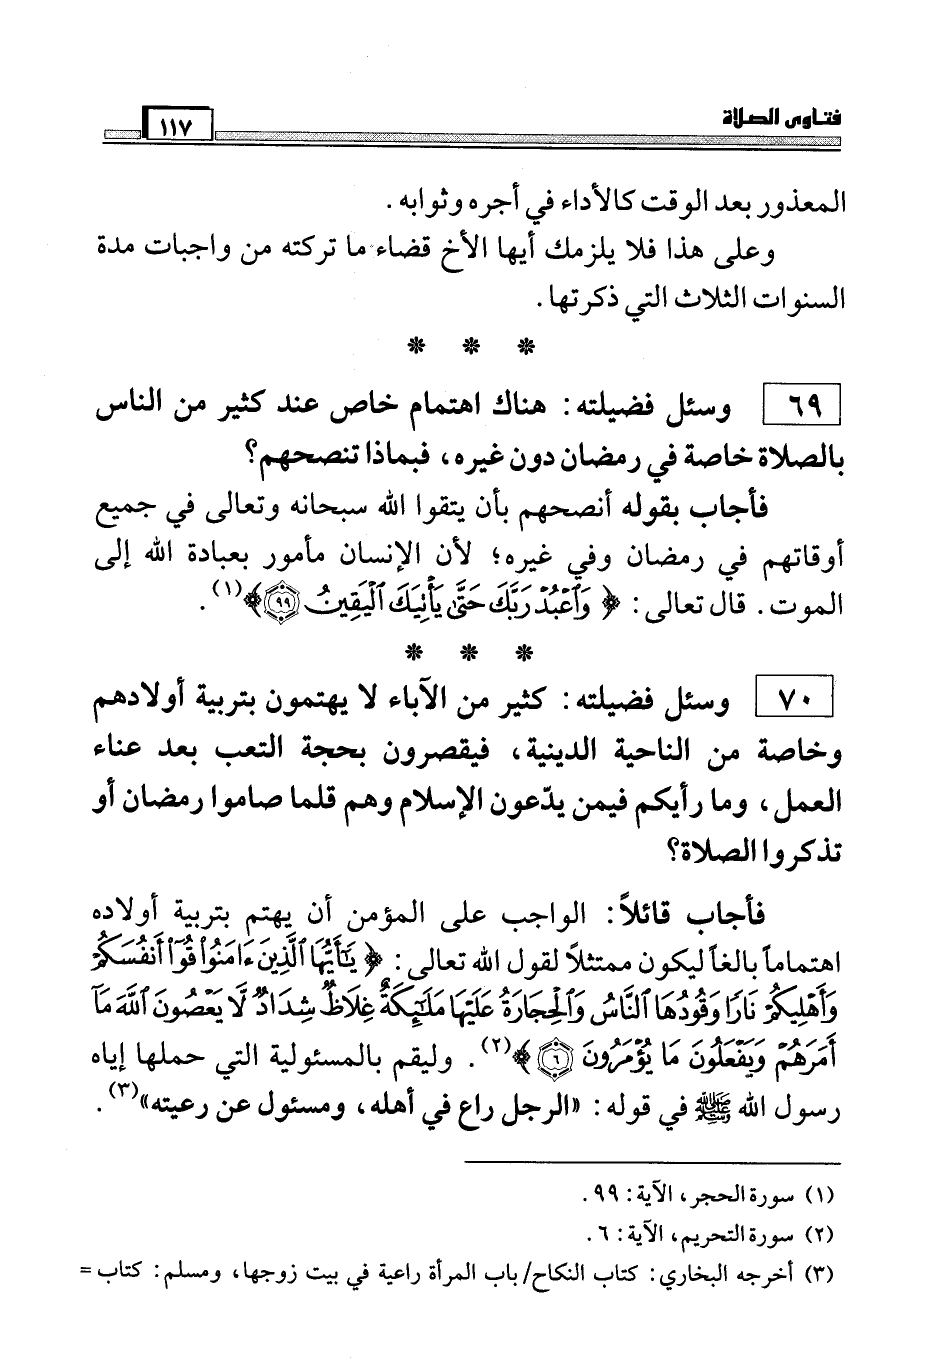 فتاوى الصلاة ١١٧
المعذور بعد الوقت كالأداء في أجره وثوابه .
وعلى هذا فلا يلزمك أيها الأخ قضاء ما تركته من واجبات مدة
السنوات الثلاث التي ذكرتها .
* * *
٦٩ وسئل فضيلته: هناك اهتمام خاص عند كثير من الناس
بالصلاة خاصة في رمضان دون غيره، فبماذا تنصحهم؟
فأجاب بقوله أنصحهم بأن يتقوا الله سبحانه وتعالى في جميع
أوقاتهم في رمضان وفي غيره؛ لأن الإنسان مأمور بعبادة الله إلى
الموت. قال تعالى: ﴿ وَٱعۡبُدۡ رَبَّكَ حَتَّىٰ يَأۡتِيَكَ ٱلۡيَقِينُ ٩٩﴾(١).
* * *
٧٠ وسئل فضيلته: كثير من الآباء لا يهتمون بتربية أولادهم
وخاصة من الناحية الدينية، فيقصرون بحجة التعب بعد عناء
العمل، وما رأيكم فيمن يدّعون الإسلام وهم قلما صاموا رمضان أو
تذكروا الصلاة؟
فأجاب قائلاً: الواجب على المؤمن أن يهتم بتربية أولاده
اهتماماً بالغاً ليكون ممتثلاً لقول الله تعالى: ﴿ يَٰٓأَيُّهَا ٱلَّذِينَ ءَامَنُواْ قُوٓاْ أَنفُسَكُمۡ
وَأَهۡلِيكُمۡ نَارٗا وَقُودُهَا ٱلنَّاسُ وَٱلۡحِجَارَةُ عَلَيۡهَا مَلَٰٓئِكَةٌ غِلَاظٞ شِدَادٞ لَّا يَعۡصُونَ ٱللَّهَ مَآ
أَمَرَهُمۡ وَيَفۡعَلُونَ مَا يُؤۡمَرُونَ ٦ ﴾(٢). وليقم بالمسئولية التي حملها إياه
رسول الله ﷺ في قوله: «الرجل راع في أهله، ومسئول عن رعيته»(٣).
(١) سورة الحجر، الآية: ٩٩.
(٢) سورة التحريم، الآية: ٦.
(٣) أخرجه البخاري: كتاب النكاح/ باب المرأة راعية في بيت زوجها، ومسلم: كتاب =